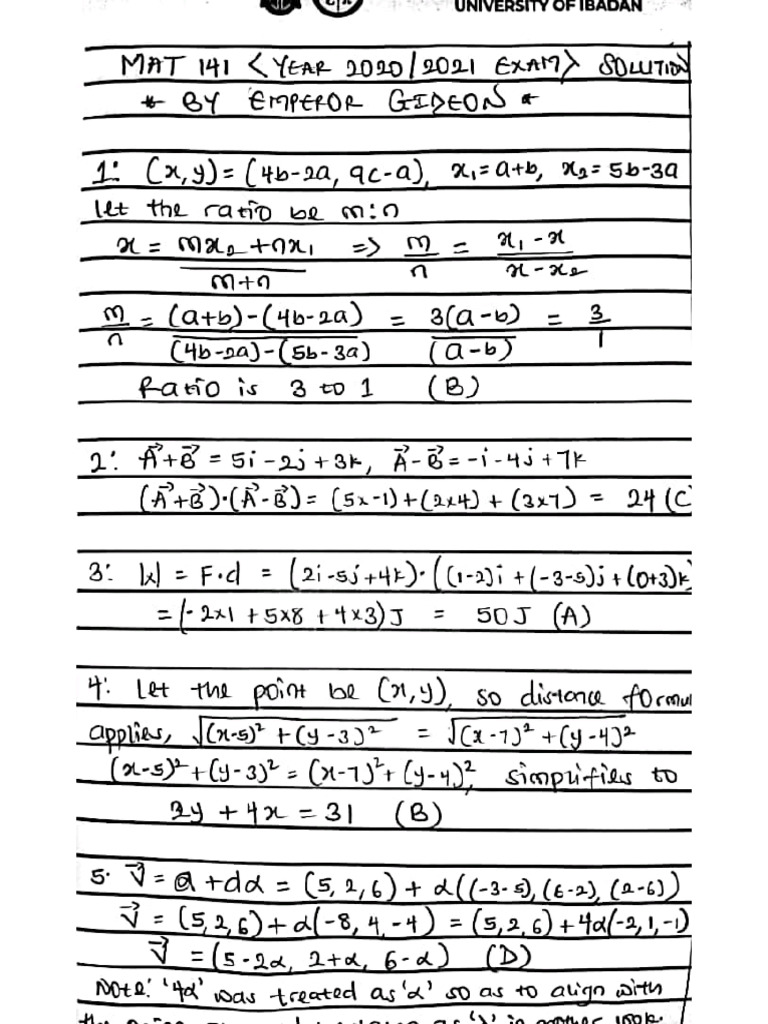 UNIVERSITY OF IBADAN
MAT 141 < YEAR 2020/2021 EXAM> SOLUTION
* BY EMPEROR GIDEON *
1: (x,y) = (4b-2a, 9c-a), x₁=a+b, x₂=5b-3a
let the ratio be m:n
x = mx₂+nx₁ / m+n => m/n = x₁-x / x-x₂
m/n = (a+b)-(4b-2a) / (4b-2a)-(5b-3a) = 3(a-b) / (a-b) = 3/1
Ratio is 3 to 1 (B)
2: A⃗+B⃗ = 5i-2j+3k, A⃗-B⃗=-i-4j+7k
(A⃗+B⃗)·(A⃗-B⃗) = (5x-1)+(2x4)+(3x7) = 24 (C
3: |x| = F.d = (2i-5j+4k)·((1-2)i+(-3-5)j+(0+3)k)
=(-2x1+5x8+4x3)J = 50J (A)
4: Let the point be (x,y), so distance formul
applies, √(x-5)²+(y-3)² = √(x-7)²+(y-4)²
(x-5)²+(y-3)² = (x-7)²+(y-4)², simplifies to
2y+4x=31 (B)
5. V⃗ = a+dα = (5,2,6)+α((-3-5),(6-2),(2-6))
V⃗ = (5,2,6)+α(-8,4,-4) = (5,2,6)+4α(-2,1,-1)
V⃗ = (5-2α, 2+α, 6-α) (D)
Note: '4α' was treated as 'α' so as to align with